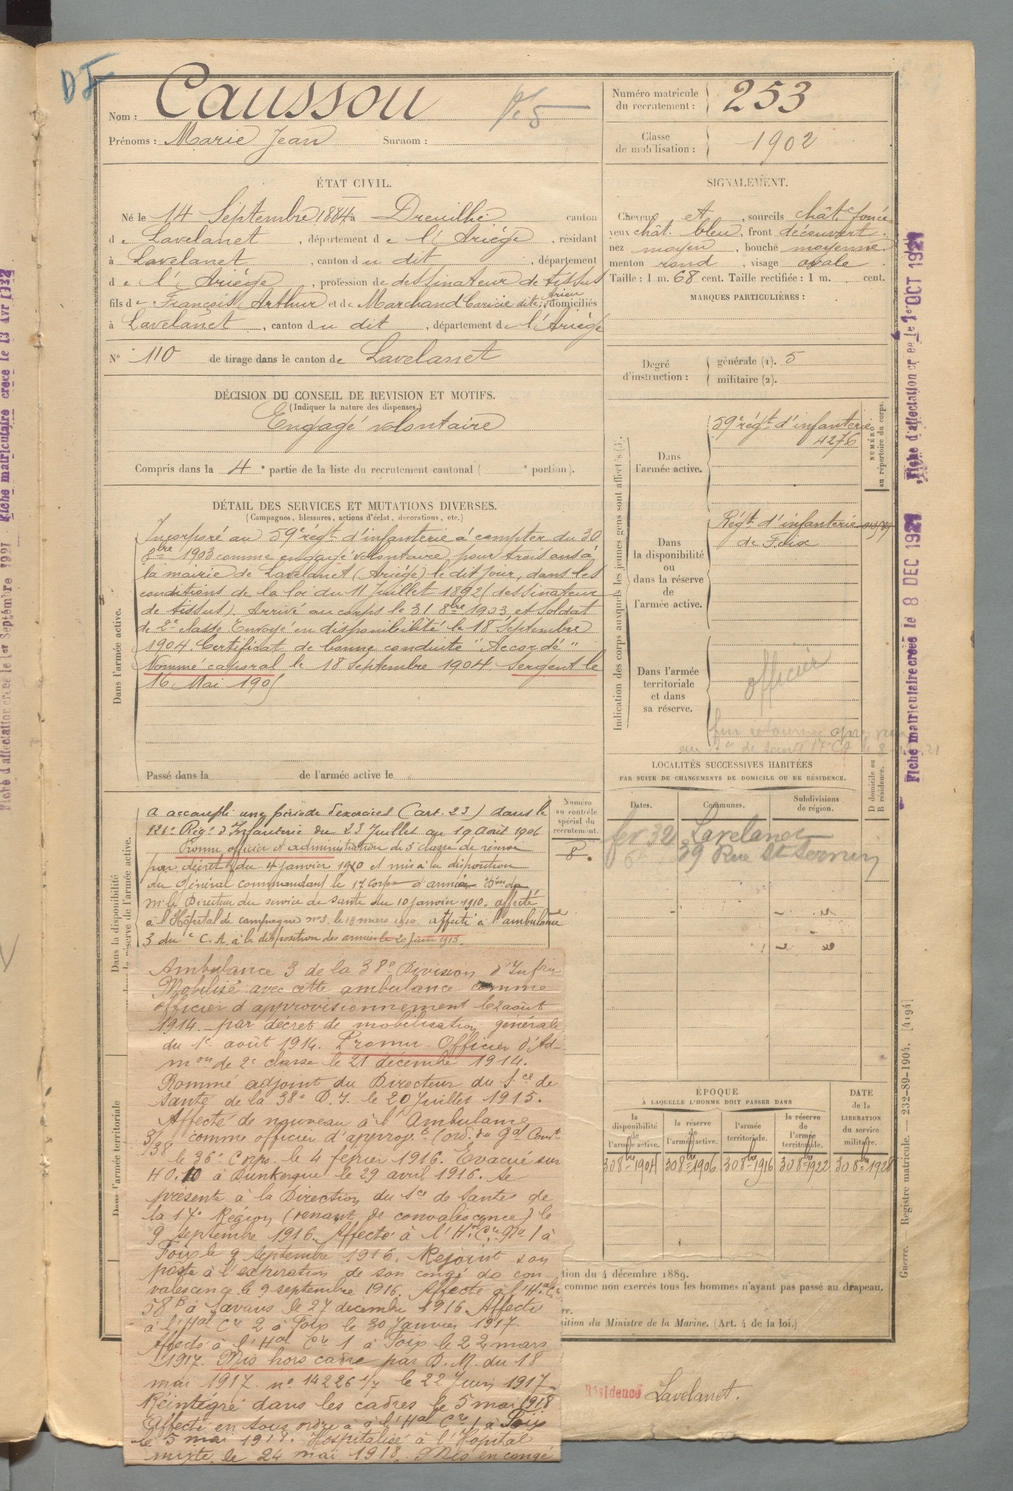 DI
Nom : Caussou
Prénoms : Marie Jean Surnom :
Numéro matricule du recrutement : 253
Classe de mobilisation : 1902
ÉTAT CIVIL.
Né le 14 Septembre 1884 à Dreuilhe canton
de Lavelanet, département de l'Ariège, résidant
à Lavelanet, canton du dit, département
de l'Ariège, profession de dessinateur de tissus
fils de François Arthur et de Marchand domiciliés
à Lavelanet, canton du dit, département de l'Ariège
N° 110 de tirage dans le canton de Lavelanet
SIGNALEMENT.
Cheveux et, sourcils chât. foncé
yeux chât. bleu, front découvert
nez moyen, bouche moyenne
menton rond, visage ovale
Taille : 1 m. 68 cent. Taille rectifiée : 1 m. cent.
MARQUES PARTICULIÈRES :
Degré d'instruction : générale (1). 5
militaire (2).
DÉCISION DU CONSEIL DE REVISION ET MOTIFS.
(Indiquer la nature des dispenses.)
Engagé volontaire
Compris dans la 4e partie de la liste du recrutement cantonal ( e portion).
DÉTAIL DES SERVICES ET MUTATIONS DIVERSES.
(Campagnes, blessures, actions d'éclat, décorations, etc.)
Dans l'armée active.
Incorporé au 59e régt d'infanterie à compter du 30
8bre 1903 comme engagé volontaire pour trois ans à
la mairie de Lavelanet (Ariège) le dit jour, dans les
conditions de la loi du 11 Juillet 1892 (dessinateur
de tissus). Arrivé au corps le 31 8bre 1903 et soldat
de 2e classe Envoyé en disponibilité le 18 Septembre
1904. Certificat de bonne conduite "Accordé"
Nommé caporal le 18 Septembre 1904. Sergent le
16 Mai 1905
Passé dans la de l'armée active le
Indication des corps auxquels les jeunes gens sont affectés
Dans l'armée active.
59e régt d'infanterie
4276
NUMÉRO au répertoire du corps.
Dans la disponibilité ou dans la réserve de l'armée active.
Régt d'infanterie
de Foix
Dans l'armée territoriale et dans sa réserve.
officier
LOCALITÉS SUCCESSIVES HABITÉES
PAR SUITE DE CHANGEMENTS DE DOMICILE OU DE RÉSIDENCE.
Dates. Communes. Subdivisions de région. D domicile ou R résidence.
fev 32 Lavelanet
39 Rue St Sernin
Numéro au contrôle spécial du recrutement.
8.
Dans la disponibilité
réserve de l'armée active.
A accompli une période d'exercices (art. 23) dans le
Régt d'Infanterie du 23 Juillet au 19 août 1906
Promu officier d'administration de 3 classe de réserve
par décret du 4 janvier 1910 et mis à la disposition
du Général commandant le 17 Corps d'armée
Mr le Directeur du service de santé du 10 janvier 1910. affecté
à l'Hôpital de campagne n° 3, le 19 mars 1910. affecté à l'ambulance
3 du C.A. à la disposition des armées
Dans l'armée territoriale
Ambulance 3 de la 38e Division d'Infrie
Mobilisé avec cette ambulance comme
officier d'approvisionnement le 2 août
1914 par décret de mobilisation générale
du 1er août 1914. Promu Officier d'Ad-
mon de 2e classe le 21 décembre 1914.
Nommé adjoint du Directeur du Sce de
santé de la 38e D.I. le 20 Juillet 1915.
Affecté de nouveau à l'Ambulance
3/38 comme officier d'approv. (ord. du Gal Comt
le 36e Corps. le 4 février 1916. Evacué sur
H.O. 10 à Dunkerque le 29 avril 1916. Se
présente à la Direction du Sce de Santé de
la 17e Région (venant de convalescence) le
9 septembre 1916. Affecté à l'Hal Cre N° 1 à
Foix le 9 septembre 1916. Rejoint son
poste à l'expiration de son congé de con
valescence le 9 septembre 1916. Affecté à l'Hal Cre
58 B à Lavaur le 27 décembre 1916. Affecté
à l'Hal Cre 2 à Foix le 30 Janvier 1917.
Affecté à l'Hal Cre 1 à Foix le 22 mars
1917. Mis hors cadre par D.M. du 18
mai 1917. n° 14226 1/7 le 22 Juin 1917
Réintégré dans les cadres le 5 mai 1918
Affecté en sous ordre à l'Hal Cre 1 à Foix
le 5 mai 1918. Hospitalisé à l'Hôpital
mixte le 24 mai 1918. Mis en congé
ÉPOQUE
À LAQUELLE L'HOMME DOIT PASSER DANS
la disponibilité de l'armée active. la réserve de l'armée active. l'armée territoriale. la réserve de l'armée territoriale. DATE de la LIBÉRATION DU SERVICE militaire.
30 8bre 1904 30 8bre 1906 30 8bre 1916 30 8bre 1922 30 8bre 1928
tion du 4 décembre 1889.
comme non exercés tous les hommes n'ayant pas passé au drapeau.
sition du Ministre de la Marine. (Art. 4 de la loi.)
Résidence Lavelanet.
Guerre. — Registre matricule. — 252-89-1904. [4194]
Fiche d'affectation créée le 1er OCT 1921
Fiche matriculaire créée le 8 DEC 1921